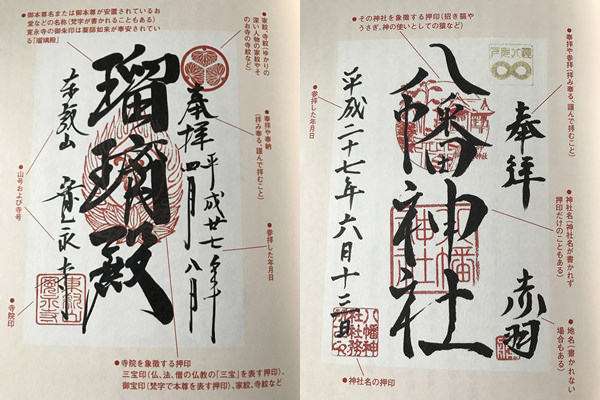 ●御本尊名または御本尊が安置されているお
堂などの名称（梵字が書かれることもある）
寛永寺の御朱印は薬師如来が奉安されてい
る「瑠璃殿」
●家紋、寺紋（ゆかりの
深い人物の家紋やそ
のお寺の寺紋など）
●奉拝や奉納
（拝み奉る、謹んで拝むこと）
●参拝した年月日
奉拝 平成廿七年
四月八日
瑠璃殿
東叡山 寛永寺
●山号および寺号
東叡山
寛永寺
●寺院印
●寺院を象徴する押印
三宝印（仏、法、僧の仏教の「三宝」を表す押印）、
御宝印（梵字で本尊を表す押印）、家紋、寺紋など
●その神社を象徴する押印（招き猫や
うさぎ、神の使いとしての猿など）
●奉拝や参拝（拝み奉る、謹んで拝むこと）
●神社名（神社名が書かれず
押印だけのこともある）
●地名（書かない
場合もある）
奉拝 赤羽
八幡神社
八幡
神社
平成二十七年六月十三日
●参拝した年月日
八幡神
社社務
●神社名の押印